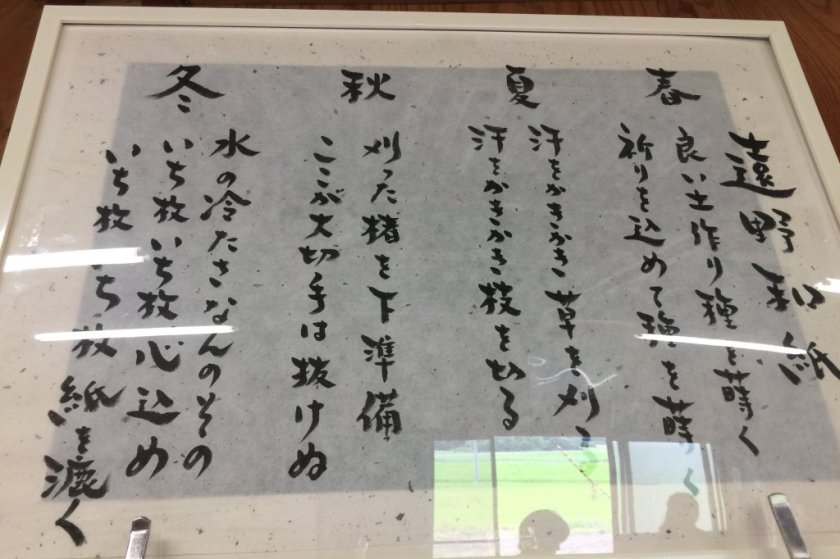 遠野和紙
春
良い土作り種を蒔く
祈りを込めて種を蒔く
夏
汗をかきかき草を刈る
汗をかきかき枝を切る
秋
刈った楮を下準備
ここが大切手は抜けぬ
冬
水の冷たさなんのその
いち枚いち枚心込め
いち枚いち枚紙を漉く